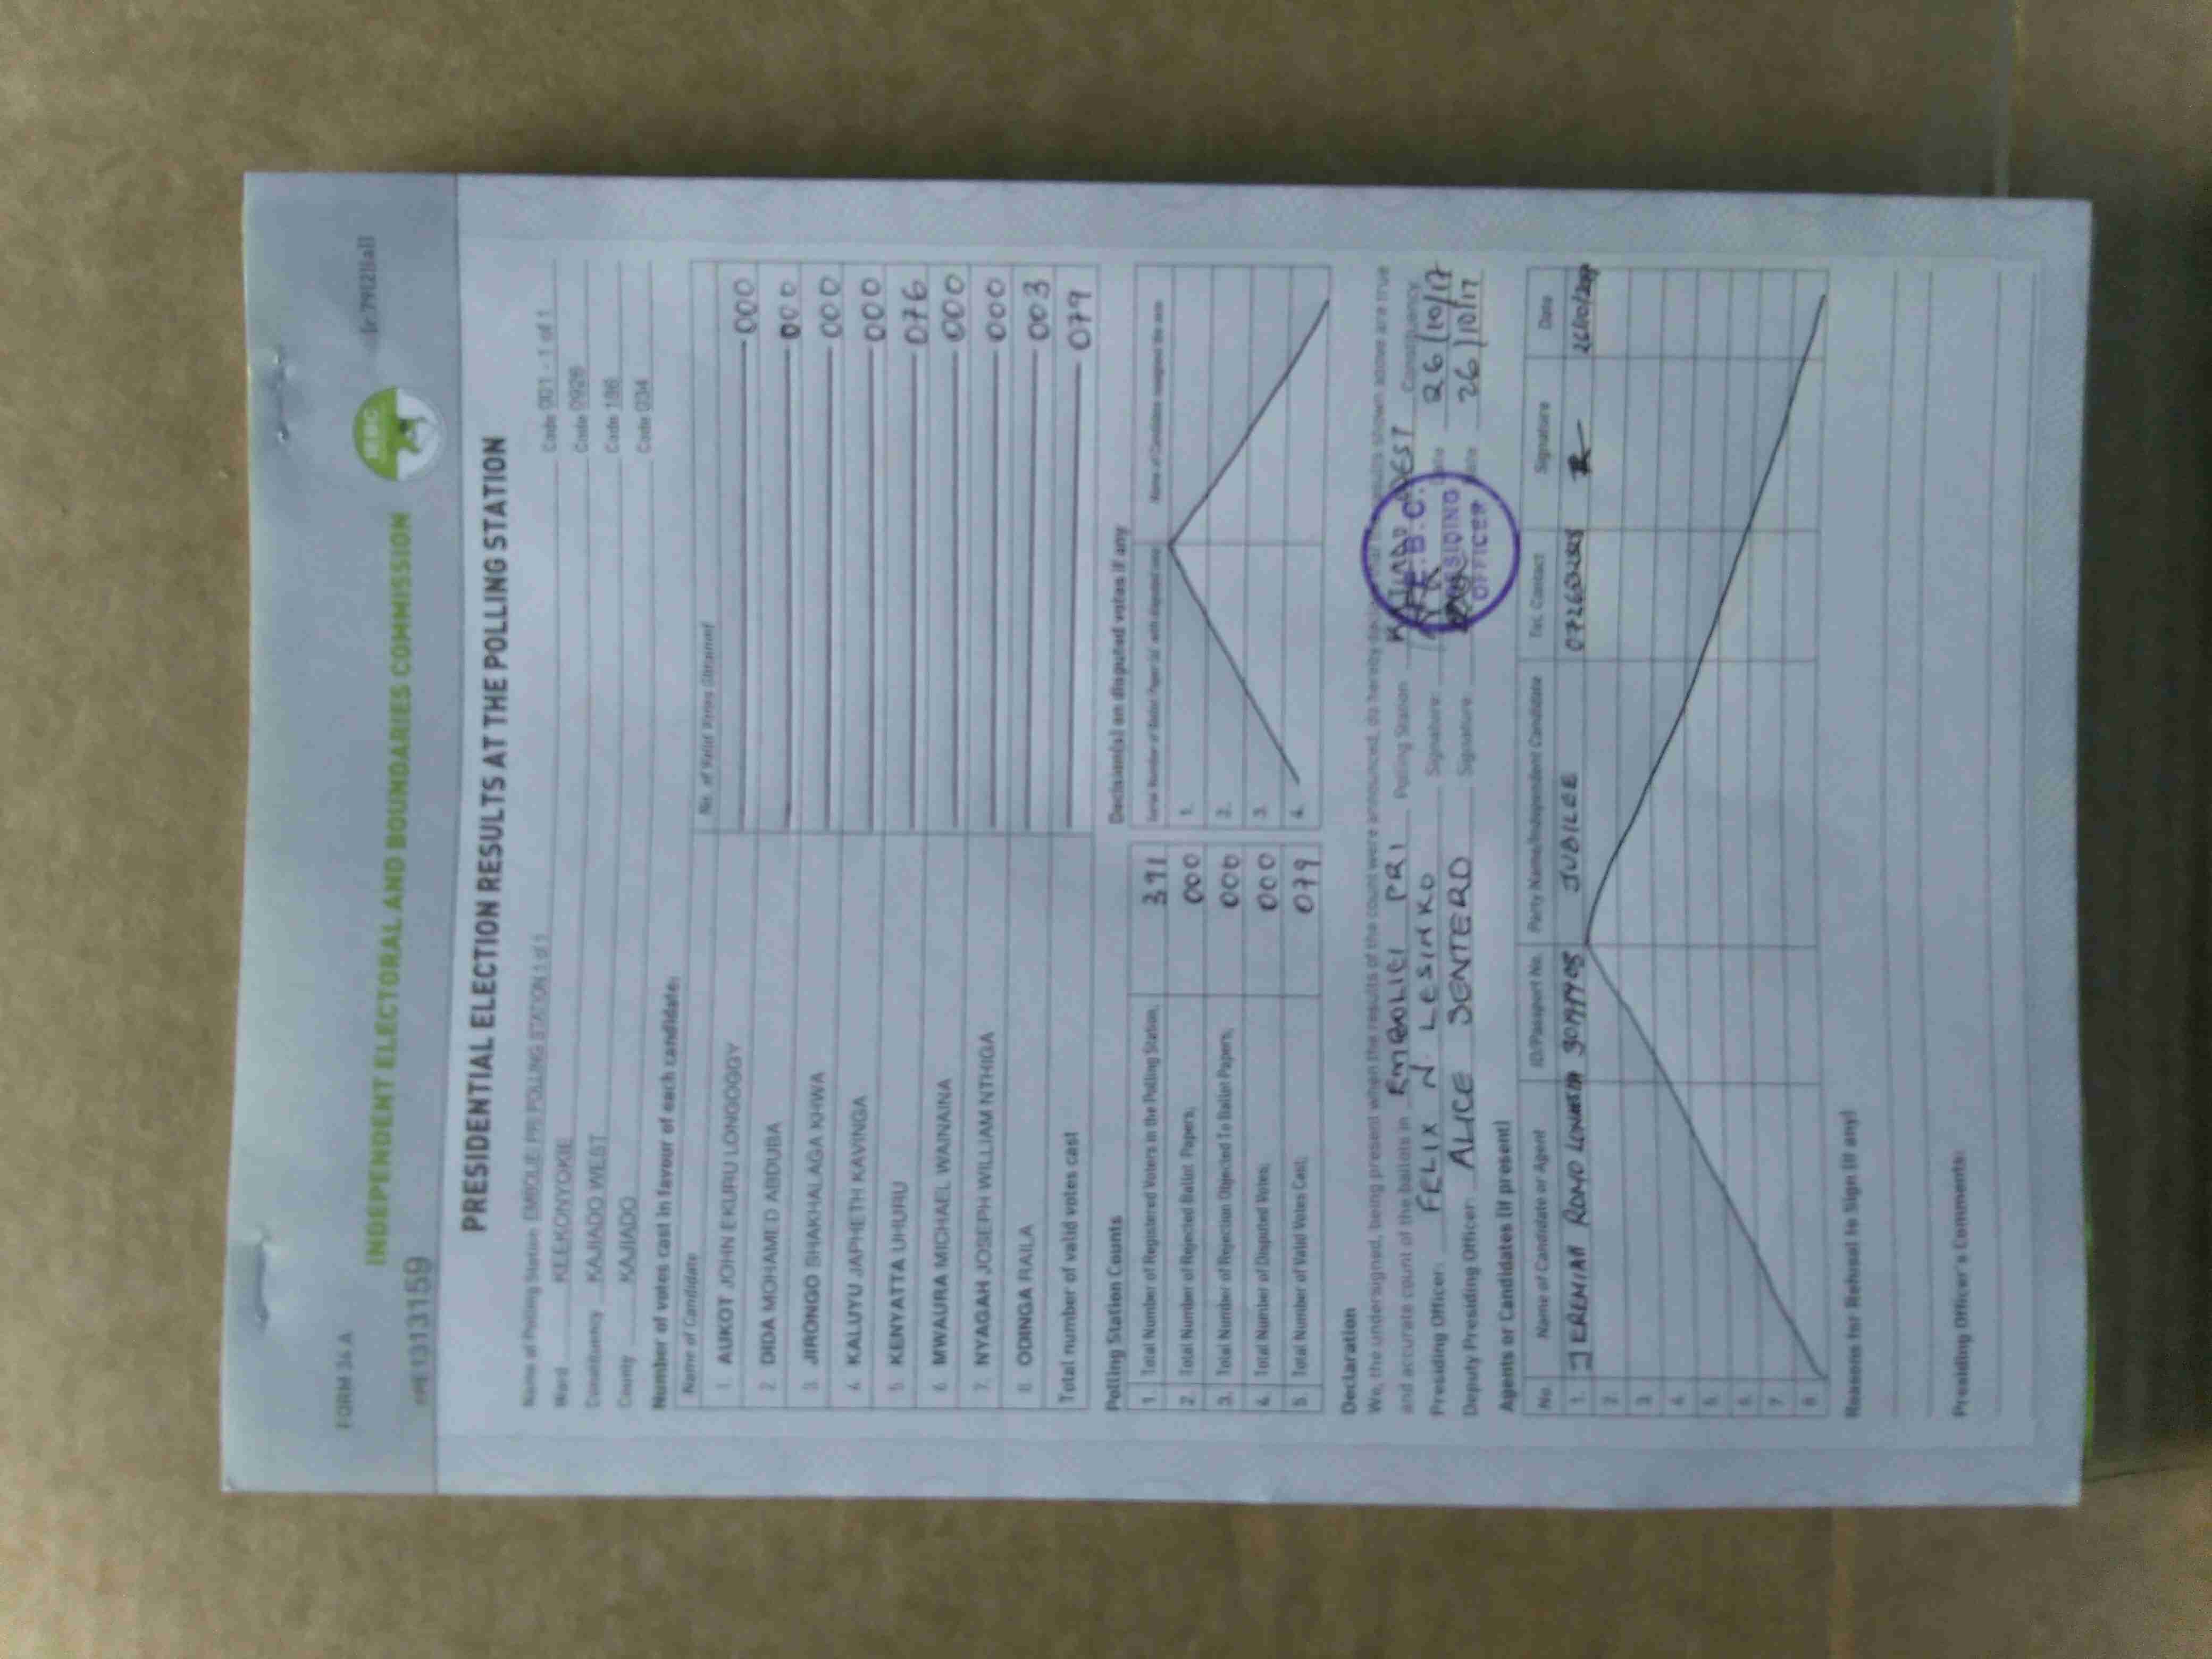 FORM 34 A
INDEPENDENT ELECTORAL AND BOUNDARIES COMMISSION
IEBC
PRESIDENTIAL ELECTION RESULTS AT THE POLLING STATION
Name of Polling Station PRI POLLING STATION 1 of 1 Code 001 - 1 of 1
Ward KEEKONYOKIE Code 0926
Constituency KAJIADO WEST Code 186
County KAJIADO Code 034
Number of votes cast in favour of each candidate:
Name of Candidate No. of Valid Votes Obtained
1. AUKOT JOHN EKURU LONGOGGY 000
2. DIDA MOHAMED ABDUBA 000
3. JIRONGO SHAKHALAGA KHWA 000
4. KALUYU JAPHETH KAVINGA 000
5. KENYATTA UHURU 076
6. MWAURA MICHAEL WAINAINA 000
7. NYAGAH JOSEPH WILLIAM NTHIGA 000
8. ODINGA RAILA 003
Total number of valid votes cast 079
Polling Station Counts
1. Total Number of Registered Voters in the Polling Station;
2. Total Number of Rejected Ballot Papers; 000
3. Total Number of Rejection Objected To Ballot Papers; 000
4. Total Number of Disputed Votes; 000
5. Total Number of Valid Votes Cast; 079
Decision(s) on disputed votes if any
1.
2.
3.
4.
Declaration
We, the undersigned, being present when the results of the count were announced, do hereby results shown above are true
and accurate count of the ballots in PRI Polling Station WEST Constituency
Presiding Officer: FELIX N. LESINKO Signature: 26/10/17
Deputy Presiding Officer: ALICE SENTERO Signature 26/10/17
I.E.B.C.
PRESIDING
OFFICER
Agents or Candidates (if present)
No. Name of Candidate or Agent ID/Passport No. Party Name/Independent Candidate Tel. Contact Signature Date
1. JEREMIAH JUBILEE
2.
3.
4.
5.
6.
7.
8.
Reasons for Refusal to Sign (if any)
Presiding Officer's Comments: